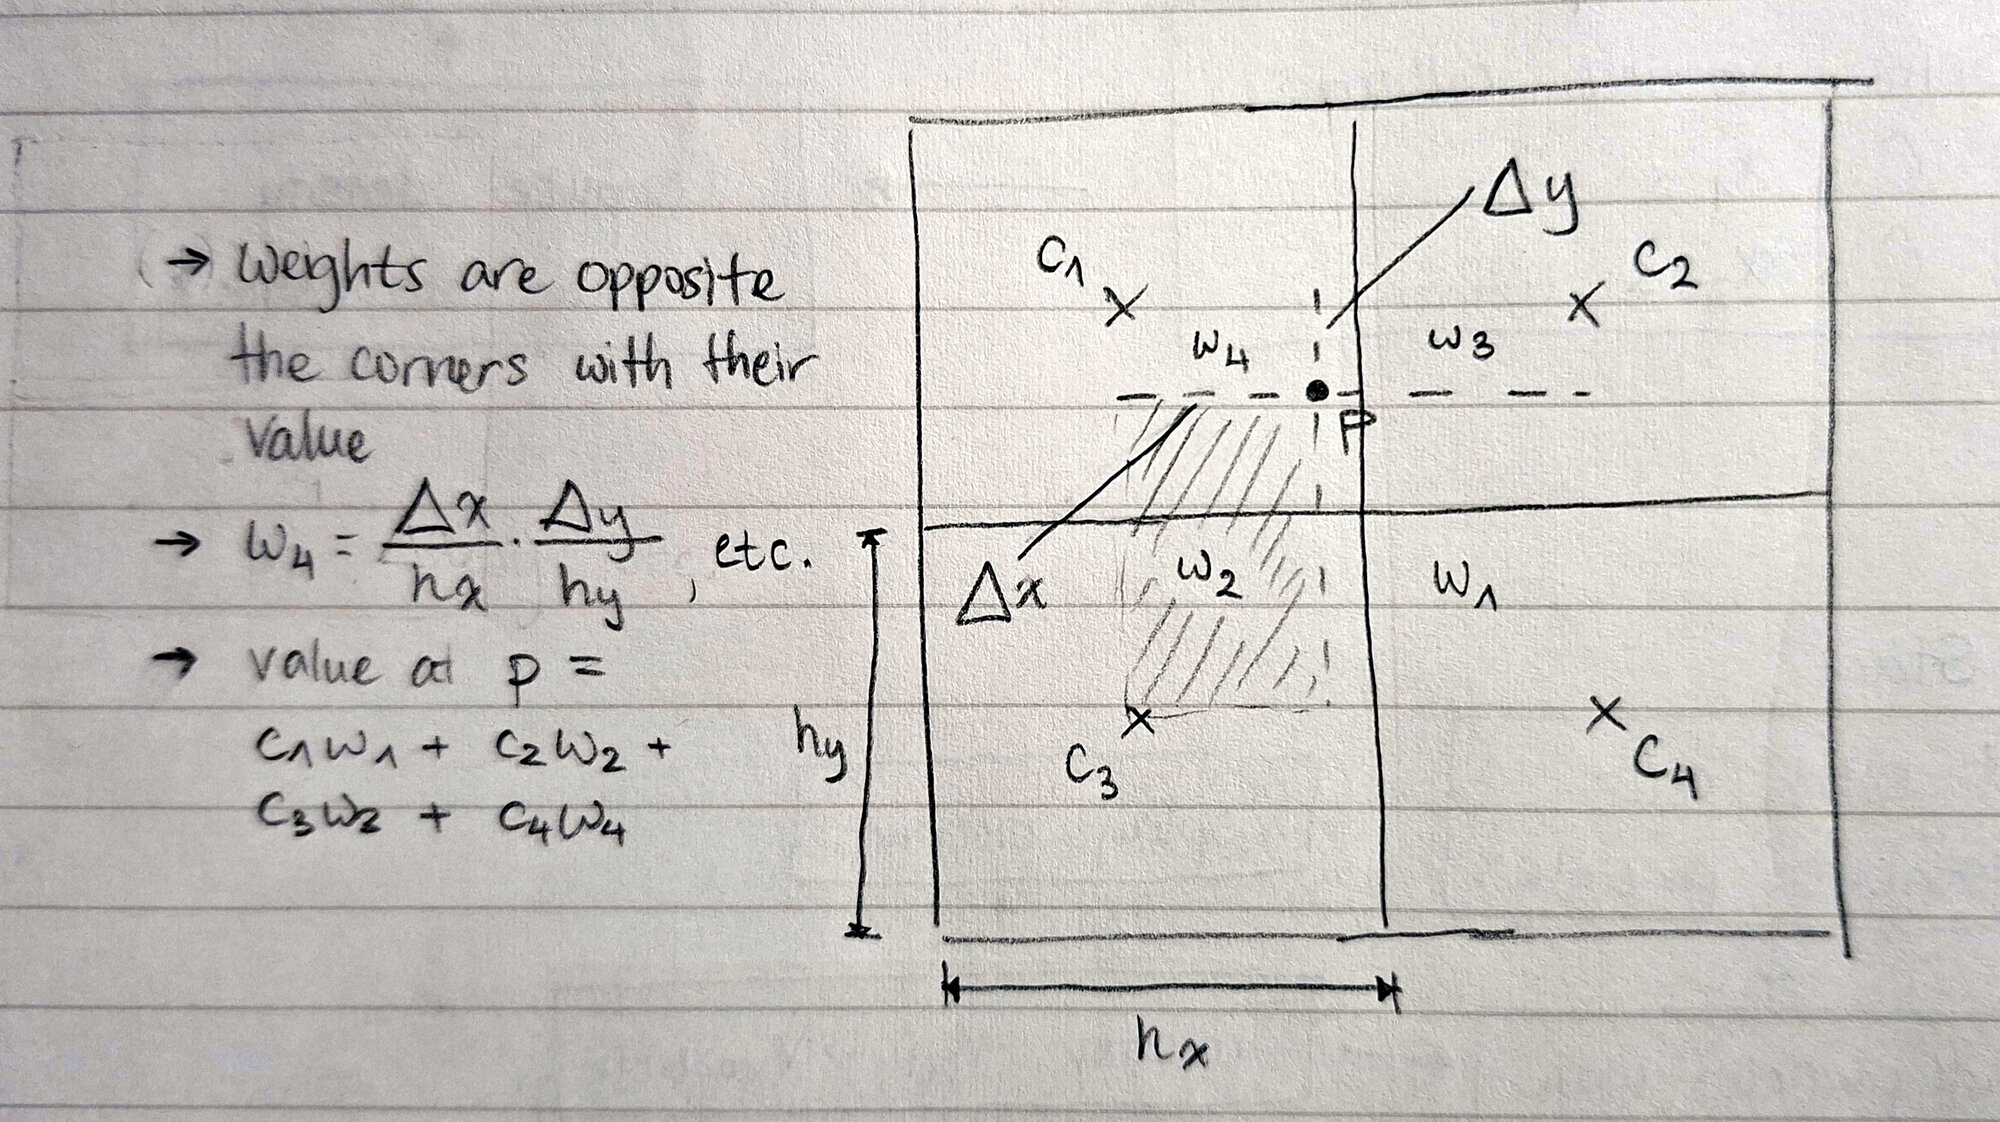 → Weights are opposite
the corners with their
value
→ w₄ = Δx/hx · Δy/hy , etc.
→ value at p =
c₁w₁ + c₂w₂ +
c₃w₂ + c₄w₄
Δy
c₁
c₂
w₄
w₃
P
Δx
w₂
w₁
hy
c₃
c₄
hx